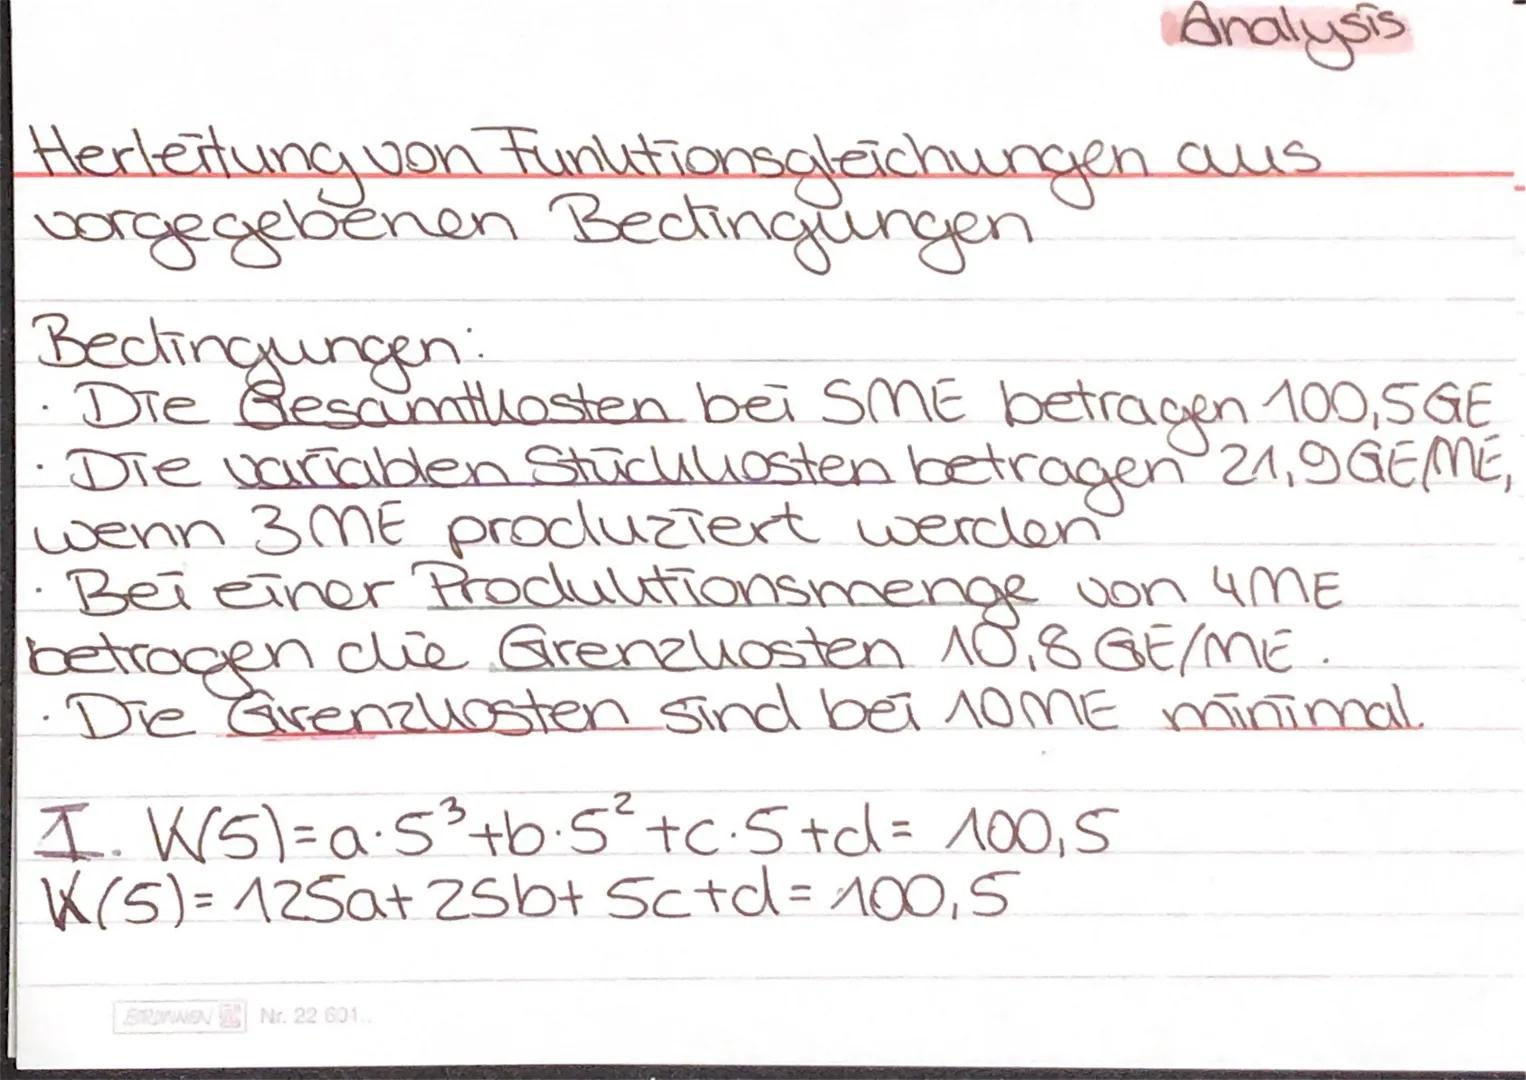 Analysis
Herleitung von Funktionsgleichungen aus
vorgegebenen Bedingungen
Bedingungen:
· Die Gesamtkosten bei 5ME betragen 100,5GE
· Die variablen Stückkosten betragen 21,9GE/ME,
wenn 3ME produziert werden
· Bei einer Produktionsmenge von 4ME
betragen die Grenzkosten 10,8 GE/ME.
· Die Grenzkosten sind bei 10ME minimal.
I. K(5)=a·5³+b·5²+c·5+d= 100,5
K(5)= 125a+25b+5c+d= 100,5
BRUNNEN Nr. 22 601..